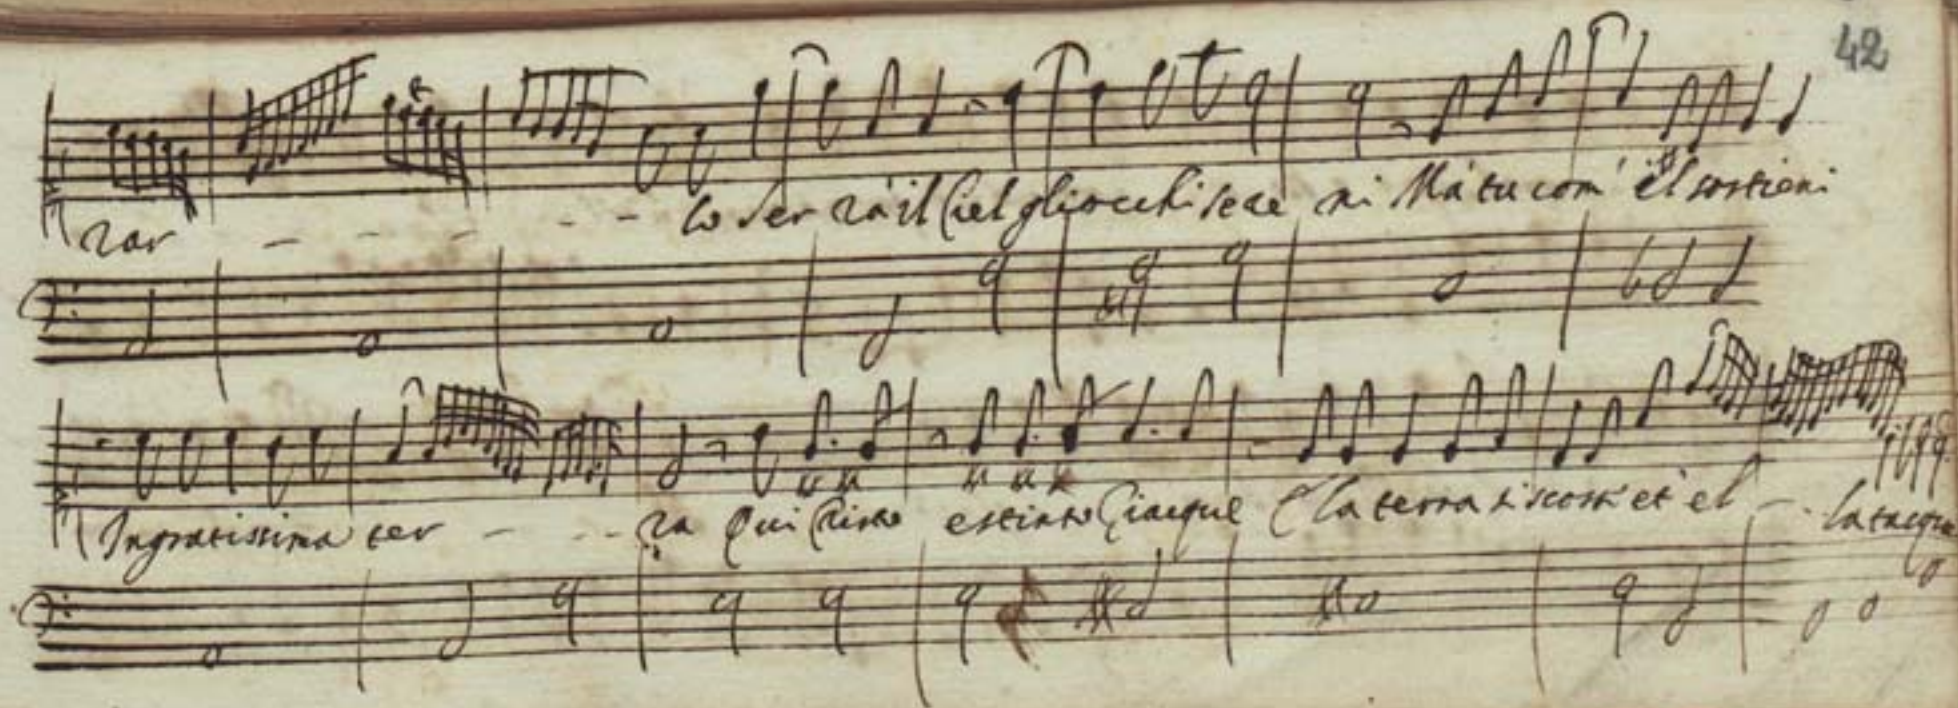 42
rar - - - - - lo Serrà il Ciel gli occhi sere ni Ma tu com' el sostieni
Ingratissima ter - - - ra Qui Cristo estinto Giacque E la terra si scosse et el - - la tacque